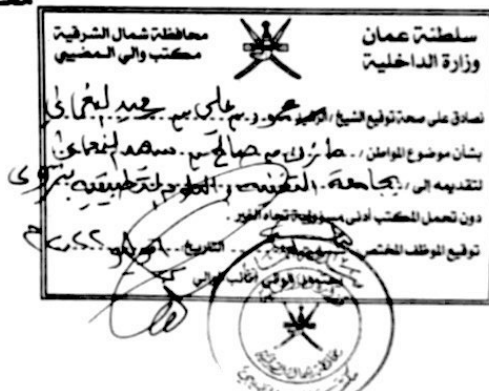 سلطنة عمان
وزارة الداخلية
محافظة شمال الشرقية
مكتب والي المضيبي
نصادق على صحة توقيع الشيخ / الرشيد حمود بن علي بن حميد النعماني
بشأن موضوع المواطن / مازن بن صالح بن سعد النعماني
لتقديمه إلى / جامعة التقنية والعلوم التطبيقية بنزوى
دون تحمل المكتب أدنى مسؤولية تجاه الغير .
توقيع الموظف المختص التاريخ
الوالي / نائب الوالي